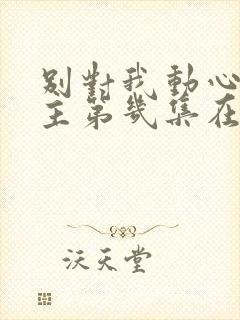 別對我動心
主第幾集在
沃天堂